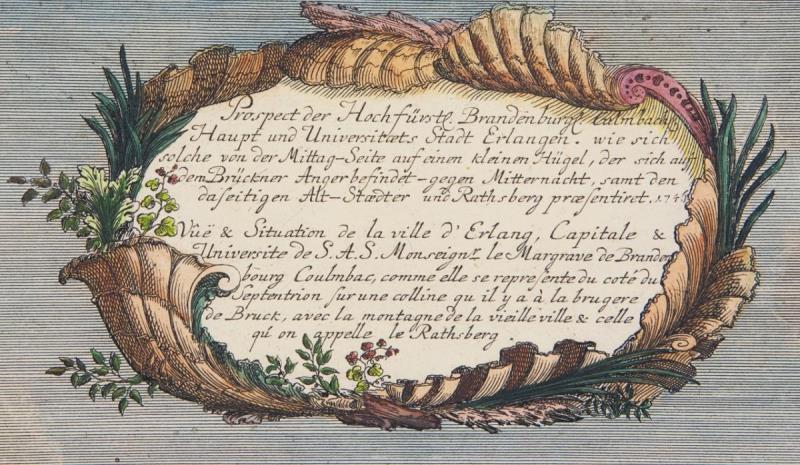 Prospect der Hochfürstl. Brandenburg. Culmbach.
Haupt und Universitæts Stadt Erlangen. wie sich
solche von der Mittag-Seite auf einen kleinen Hügel, der sich auf
dem Brückner Anger befindet-gegen Mitternacht, samt den
daseitigen Alt-Stædter und Rathsberg præsentiret.
Vüë & Situation de la ville d'Erlang, Capitale &
Universite de S. A. S. Monseignr. le Margrave de Branden
bourg Coulmbac, comme elle se represente du coté du
Septentrion sur une colline qu il y a à la brugere
de Bruck, avec la montagne de la vieille ville & celle
qú on appelle le Rathsberg.